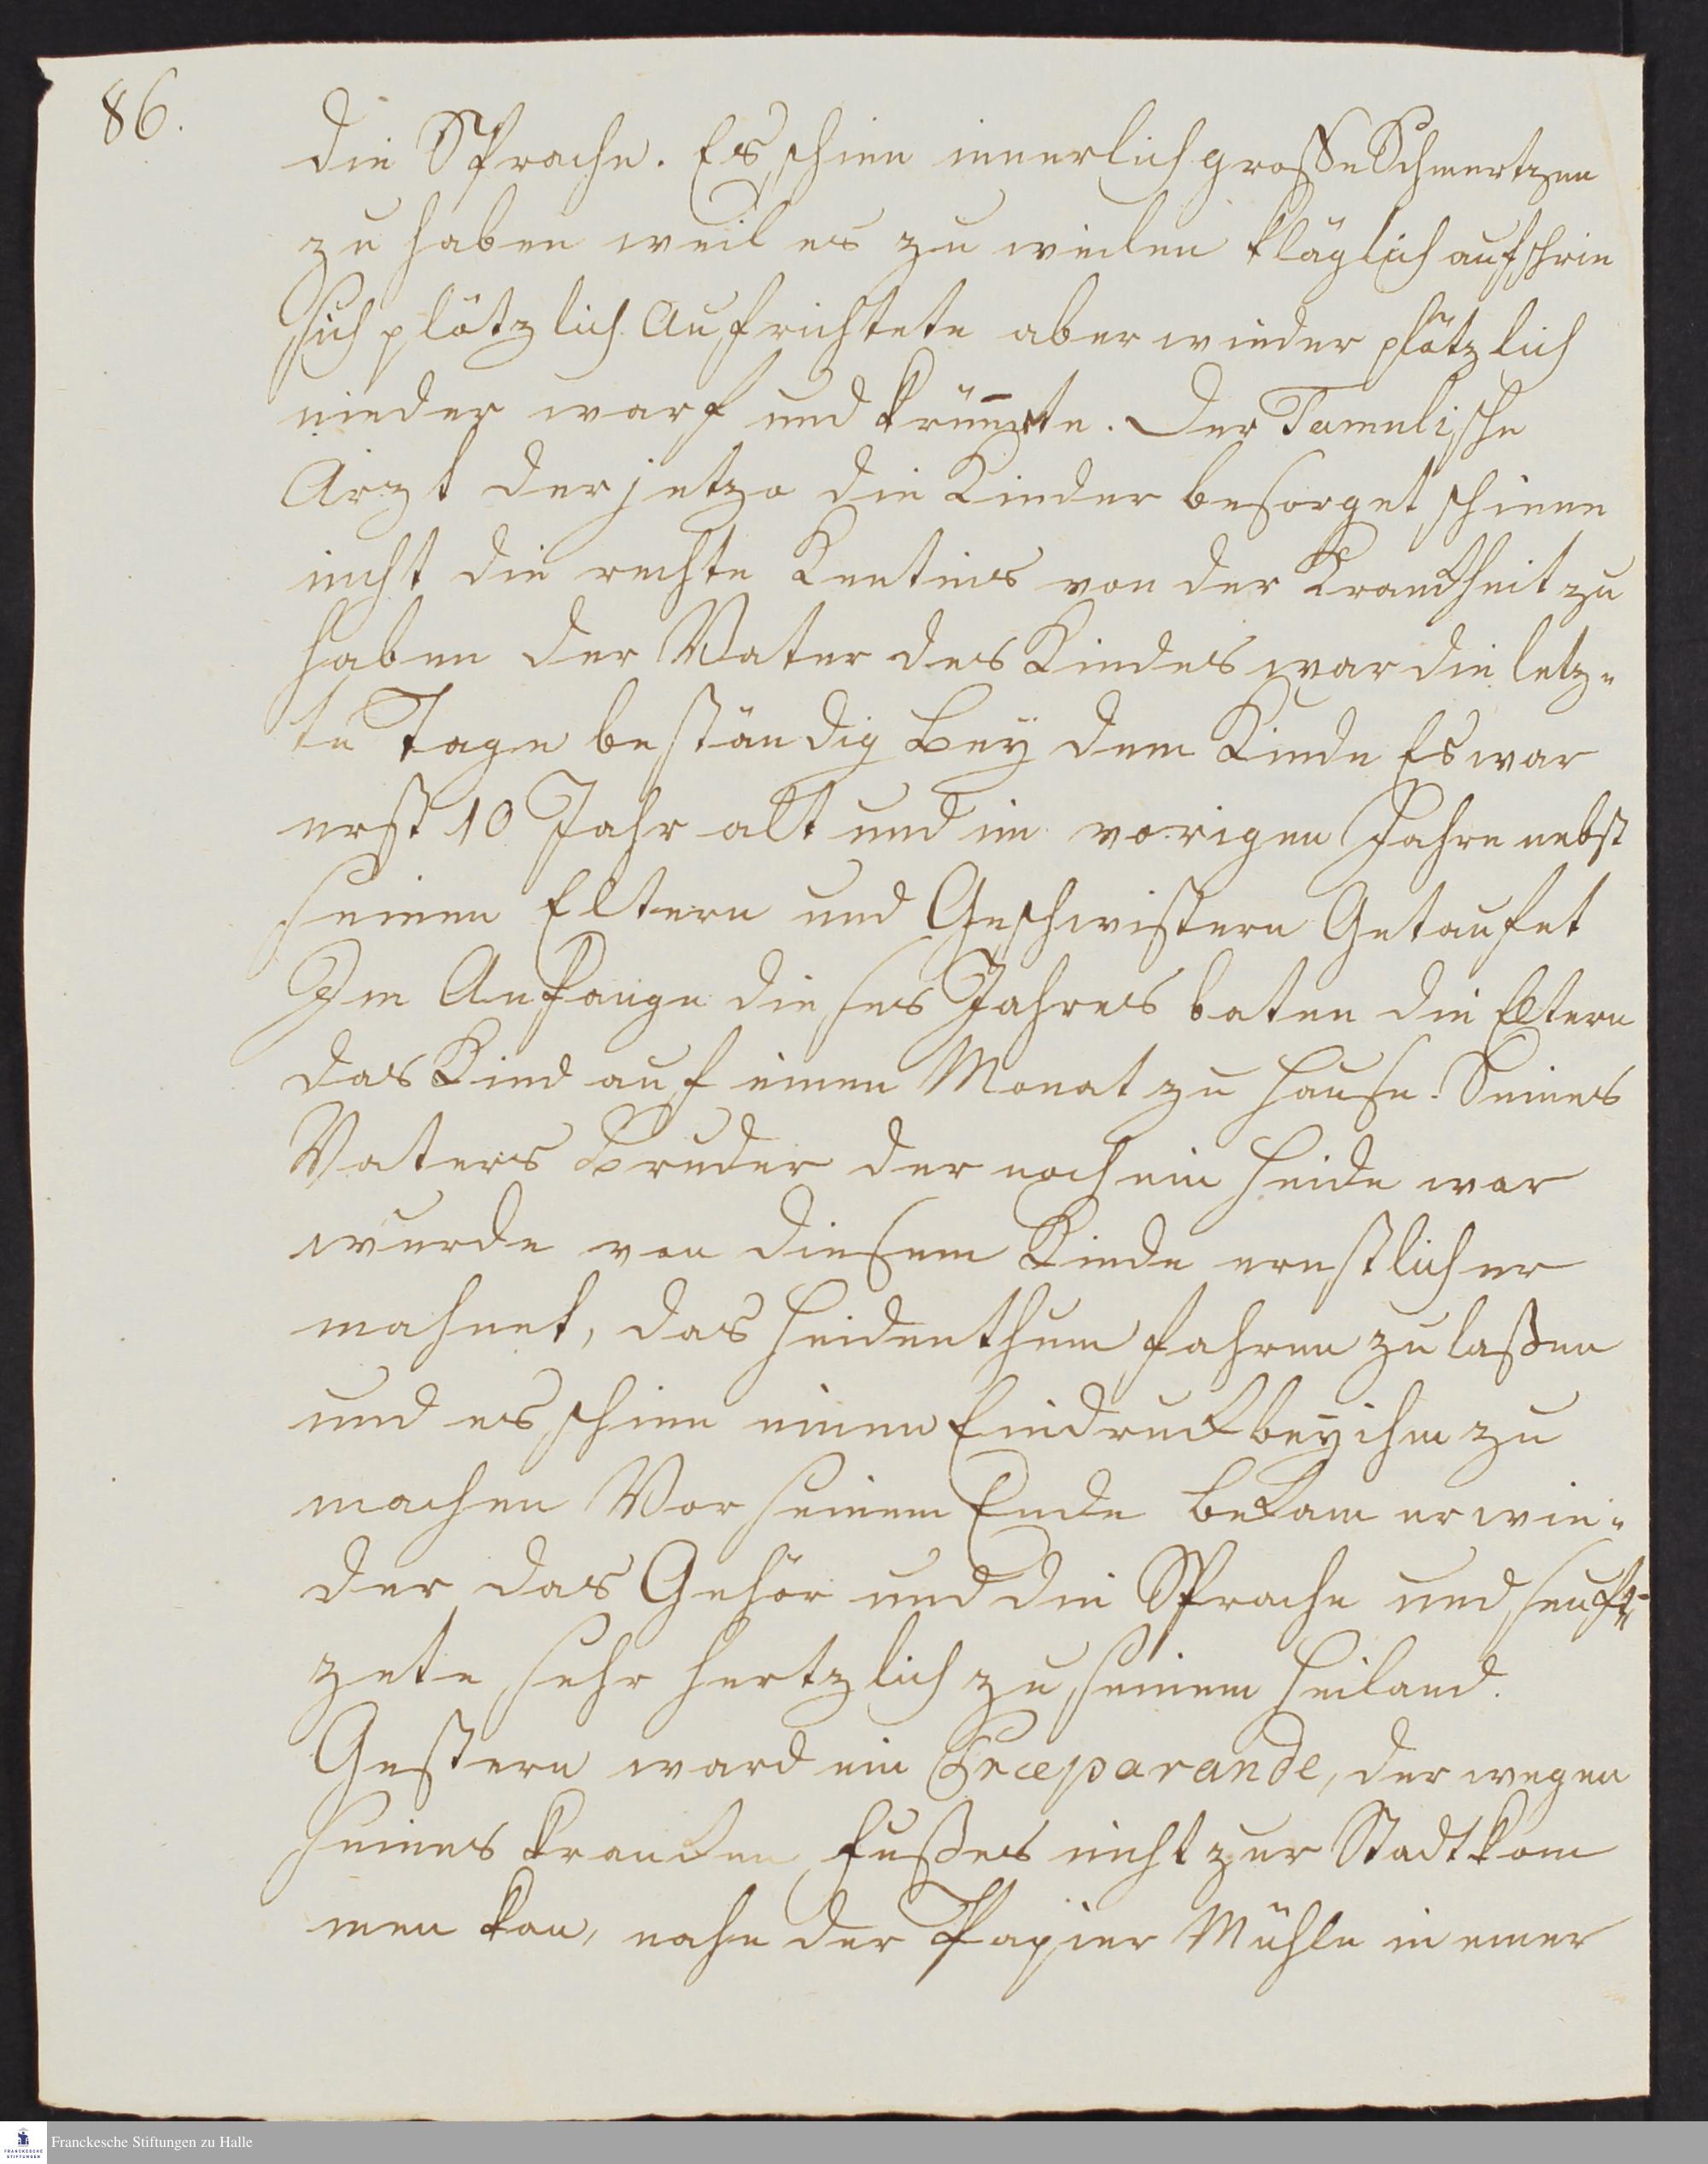 86.
die Sprache. Es schien innerlich große Schmertzen
zu haben weil es zu weilen kläglich aufschrie
sich plötzlich Aufrichtete aber wieder plötzlich
nieder warf und krüm̅te. Der Tamulische
Arzt der jetzo die Kinder besorget schiene
nicht die rechte Kentnis von der Kranckheit zu
haben der Vater des Kindes war die letz-
te Tage beständig Bey dem Kinde Es war
erst 10 Jahr alt und im vorigen Jahre nebst
seinen Eltern und Geschwistern Getaufet
Im Anfange dieses Jahres baten die Eltern
das Kind auf einen Monat zu Hause. Seines
Vaters Bruder der noch ein Heide war
wurde von diesem Kinde ernstlich er
mahnet, das Heidenthum fahren zu laßen
und es schien einen Eindruck bey ihm zu
machen Vor seinem Ende bekam er wie-
der das Gehör und die Sprache und seuft-
zete sehr hertzlich zu seinem Heiland.
Gestern ward ein Præparande, der wegen
seines krancken Fußes nicht zur Stadt kom
men kan, nahe der Papier Mühle in einer
Franckesche Stiftungen zu Halle
FRANCKESCHE
STIFTUNGEN